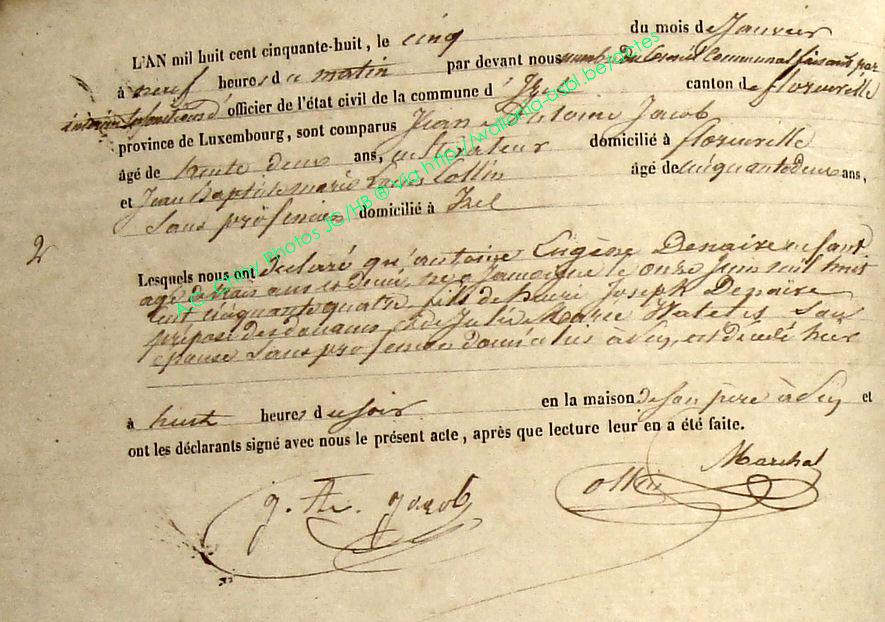 L'AN mil huit cent cinquante-huit, le cinq du mois de Janvier
à neuf heures du matin par devant nous membre du Conseil Communal faisant par
interim les fonctions d'officier de l'état civil de la commune d'Izel canton de florenville
province de Luxembourg, sont comparus Jean Antoine Jacob
âgé de trente deux ans, cultivateur domicilié à florenville
et Jean Baptiste marie Louis Collin âgé de cinquante deux ans,
sans profession domicilié à Izel
2
Lesquels nous ont déclaré qu'antoine Eugène Denaire enfant
agé de trois ans et demi, né à Jamoigne le onze Juin mil huit
cent cinquante quatre fils de henri Joseph Denaire
préposé des douanes et de Julie Marie Watelet Son
épouse Sans profession domiciliés à, est décédé hier
à huit heures du soir en la maison de son père à et
ont les déclarants signé avec nous le présent acte, après que lecture leur en a été faite.
Marchal
J. At. Jacob Collin
A.C. Chiny Photos JC/HB ® via http://wallonia-asbl.be/actes